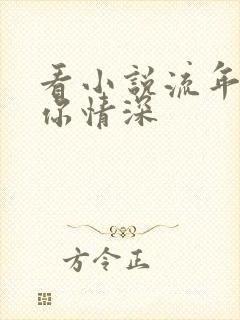 看小說流年
你情深
方令正